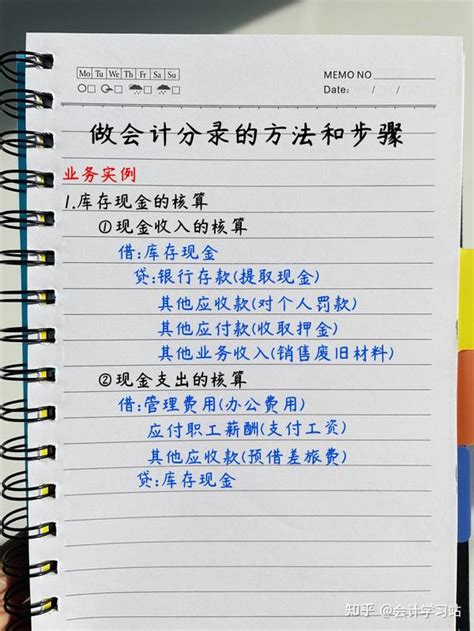 Mo Tu We Th Fr Sa Su
MEMO NO
Date: / /
做会计分录的方法和步骤
业务实例
1.库存现金的核算
①现金收入的核算
借:库存现金
贷:银行存款(提取现金)
其他应收款(对个人罚款)
其他应付款(收取押金)
其他业务收入(销售废旧材料)
②现金支出的核算
借:管理费用(办公费用)
应付职工薪酬(支付工资)
其他应收款(预借差旅费)
贷:库存现金
知乎 @会计学习站